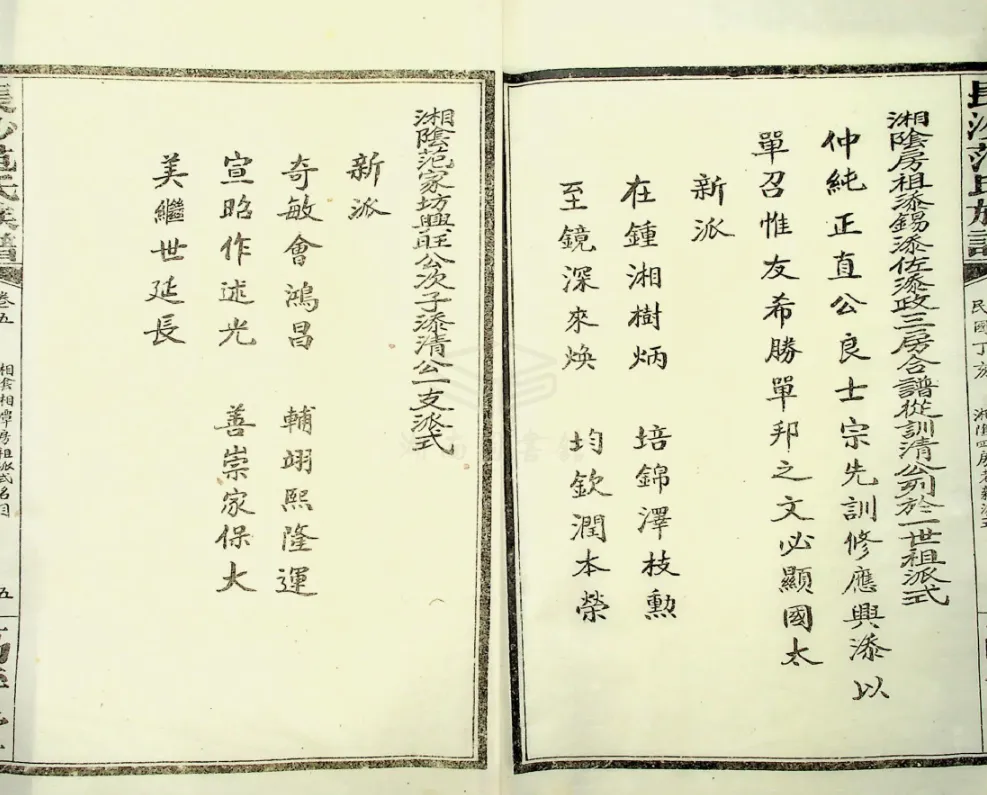 長沙范氏族譜
民國丁亥
湘陰房祖添錫添佐添政三房合譜從訓清公列於一世祖派式
仲純正直公良士宗先訓修應興添以
單召惟友希勝單邦之文必顯國太
新派
在鍾湘樹炳 培錦澤枝勳
至鏡深來煥 均欽潤本榮
湘陰范家坊興旺公次子添清公一支派式
新派
奇敏會鴻昌 輔翊熙隆運
宣昭作述光 善崇家保大
美繼世延長
長沙范氏族譜
卷五
湘陰湘潭房祖派式名目
五